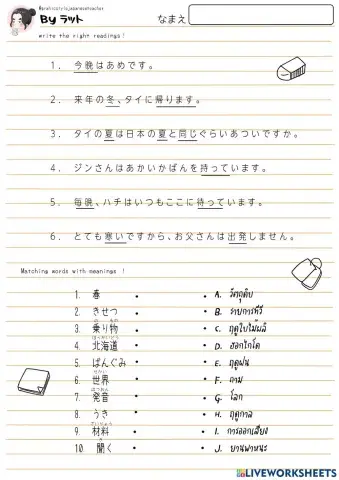 @prahistoriajapaneseteacher
By ラット
なまえ
write the right readings!
1. 今晩はあめです。
2. 来年の冬、タイに帰ります。
3. タイの夏は日本の夏と同じぐらいあついですか。
4. ジンさんはあかいかばんを持っています。
5. 毎晩、ハチはいつもここに待っています。
6. とても寒いですから、お父さんは出発しません。
Matching words with meanings !
1. 春 • • A. วัตถุดิบ
2. きせつ • • B. รายการทีวี
3. 乗り物 • • C. ฤดูใบไม้ผลิ
ほっかいどう
4. 北海道 • • D. ฮอกไกโด
5. ばんぐみ • • E. ฤดูฝน
せかい
6. 世界 • • F. ถาม
はつおん
7. 発音 • • G. โลก
8. うき • • H. ฤดูกาล
ざいりょう
9. 材料 • • I. การออกเสียง
10. 聞く • • J. ยานพาหนะ
LIVEWORKSHEETS